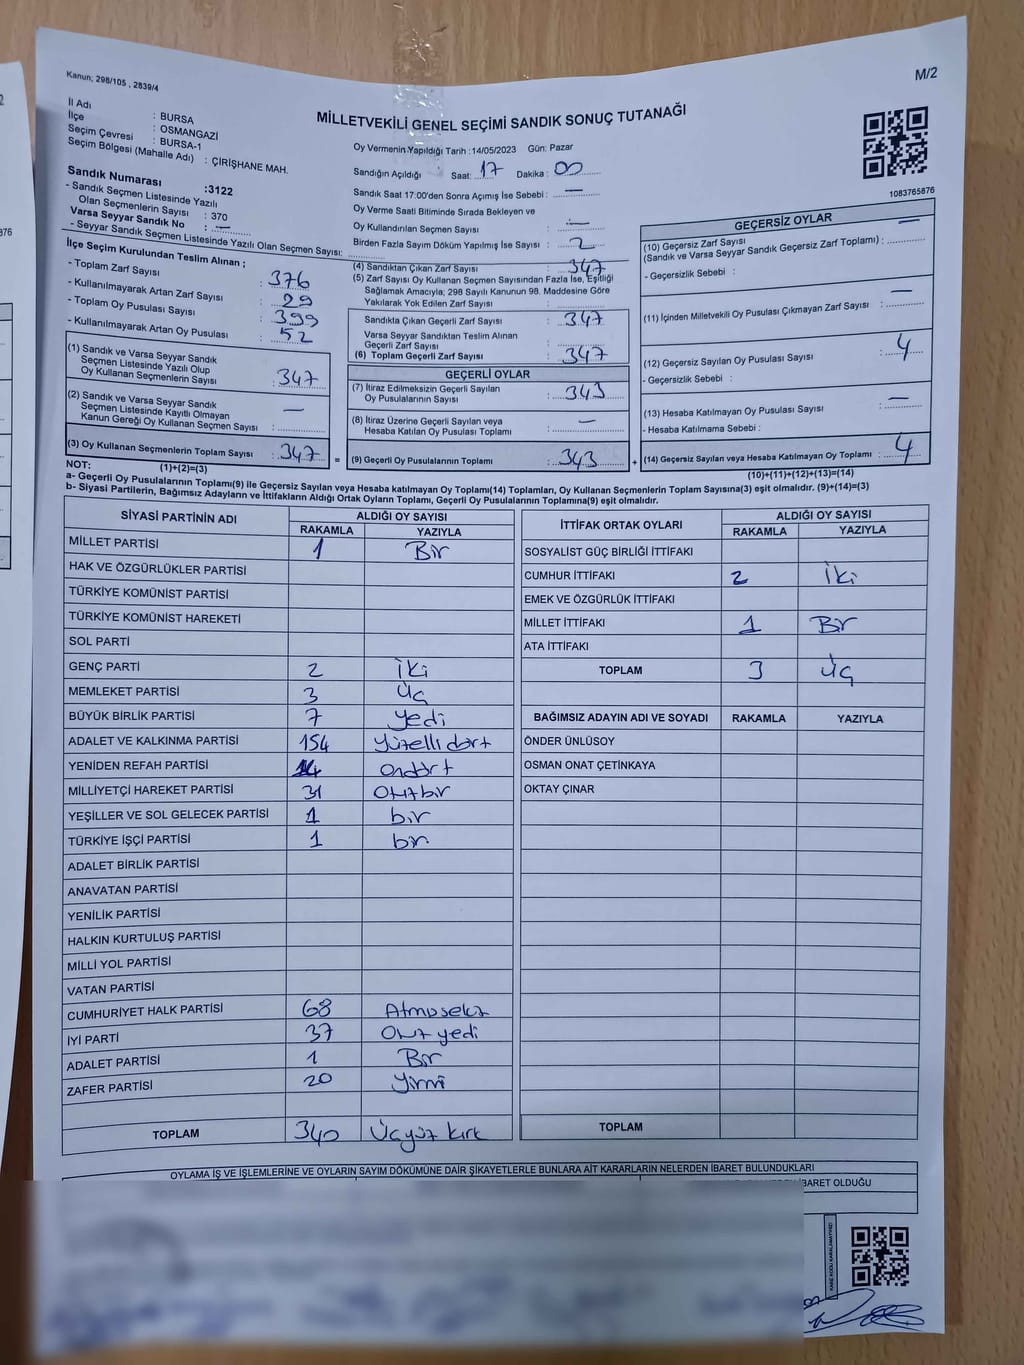 Kanun; 298/105 , 2839/4
M/2
MİLLETVEKİLİ GENEL SEÇİMİ SANDIK SONUÇ TUTANAĞI
İl Adı : BURSA
İlçe : OSMANGAZİ
Seçim Çevresi : BURSA-1
Seçim Bölgesi (Mahalle Adı) : ÇİRİŞHANE MAH.
Sandık Numarası :3122
- Sandık Seçmen Listesinde Yazılı
Olan Seçmenlerin Sayısı : 370
Varsa Seyyar Sandık No : —
- Seyyar Sandık Seçmen Listesinde Yazılı Olan Seçmen Sayısı:
İlçe Seçim Kurulundan Teslim Alınan ;
- Toplam Zarf Sayısı : 376
- Kullanılmayarak Artan Zarf Sayısı : 29
- Toplam Oy Pusulası Sayısı : 399
- Kullanılmayarak Artan Oy Pusulası : 52
(1) Sandık ve Varsa Seyyar Sandık
Seçmen Listesinde Yazılı Olup
Oy Kullanan Seçmenlerin Sayısı : 347
(2) Sandık ve Varsa Seyyar Sandık
Seçmen Listesinde Kayıtlı Olmayan
Kanun Gereği Oy Kullanan Seçmen Sayısı : —
(3) Oy Kullanan Seçmenlerin Toplam Sayısı : 347
Oy Vermenin Yapıldığı Tarih :14/05/2023 Gün: Pazar
Sandığın Açıldığı Saat: 17 Dakika : 00
Sandık Saat 17:00'den Sonra Açımış İse Sebebi : —
Oy Verme Saati Bitiminde Sırada Bekleyen ve
Oy Kullandırılan Seçmen Sayısı : —
Birden Fazla Sayım Döküm Yapılmış İse Sayısı : 2
(4) Sandıktan Çıkan Zarf Sayısı : 347
(5) Zarf Sayısı Oy Kullanan Seçmen Sayısından Fazla İse, Eşitliği
Sağlamak Amacıyla; 298 Sayılı Kanunun 98. Maddesine Göre
Yakılarak Yok Edilen Zarf Sayısı :
Sandıkta Çıkan Geçerli Zarf Sayısı : 347
Varsa Seyyar Sandıktan Teslim Alınan
Geçerli Zarf Sayısı :
(6) Toplam Geçerli Zarf Sayısı : 347
GEÇERLİ OYLAR
(7) İtiraz Edilmeksizin Geçerli Sayılan
Oy Pusulalarının Sayısı : 343
(8) İtiraz Üzerine Geçerli Sayılan veya
Hesaba Katılan Oy Pusulası Toplamı : —
= (9) Geçerli Oy Pusulalarının Toplamı : 343
1083765876
GEÇERSİZ OYLAR
(10) Geçersiz Zarf Sayısı
(Sandık ve Varsa Seyyar Sandık Geçersiz Zarf Toplamı) : —
- Geçersizlik Sebebi :
(11) İçinden Milletvekili Oy Pusulası Çıkmayan Zarf Sayısı : —
(12) Geçersiz Sayılan Oy Pusulası Sayısı : 4
- Geçersizlik Sebebi :
(13) Hesaba Katılmayan Oy Pusulası Sayısı : —
- Hesaba Katılmama Sebebi :
+ (14) Geçersiz Sayılan veya Hesaba Katılmayan Oy Toplamı : 4
NOT: (1)+(2)=(3)
(10)+(11)+(12)+(13)=(14)
a- Geçerli Oy Pusulalarının Toplamı(9) ile Geçersiz Sayılan veya Hesaba Katılmayan Oy Toplamı(14) Toplamları, Oy Kullanan Seçmenlerin Toplam Sayısına(3) eşit olmalıdır. (9)+(14)=(3)
b- Siyasi Partilerin, Bağımsız Adayların ve İttifakların Aldığı Ortak Oyların Toplamı, Geçerli Oy Pusulalarının Toplamına(9) eşit olmalıdır.
SİYASİ PARTİNİN ADI ALDIĞI OY SAYISI
RAKAMLA YAZIYLA
MİLLET PARTİSİ 1 Bir
HAK VE ÖZGÜRLÜKLER PARTİSİ
TÜRKİYE KOMÜNİST PARTİSİ
TÜRKİYE KOMÜNİST HAREKETİ
SOL PARTİ
GENÇ PARTİ 2 İki
MEMLEKET PARTİSİ 3 Üç
BÜYÜK BİRLİK PARTİSİ 7 yedi
ADALET VE KALKINMA PARTİSİ 154 Yüzelli dört
YENİDEN REFAH PARTİSİ 14 Ondört
MİLLİYETÇİ HAREKET PARTİSİ 31 Otuzbir
YEŞİLLER VE SOL GELECEK PARTİSİ 1 bir
TÜRKİYE İŞÇİ PARTİSİ 1 bir
ADALET BİRLİK PARTİSİ
ANAVATAN PARTİSİ
YENİLİK PARTİSİ
HALKIN KURTULUŞ PARTİSİ
MİLLİ YOL PARTİSİ
VATAN PARTİSİ
CUMHURİYET HALK PARTİSİ 68 Atmışsekiz
İYİ PARTİ 37 Otuz yedi
ADALET PARTİSİ 1 Bir
ZAFER PARTİSİ 20 Yirmi
TOPLAM 340 Üçyüz kırk
İTTİFAK ORTAK OYLARI ALDIĞI OY SAYISI
RAKAMLA YAZIYLA
SOSYALİST GÜÇ BİRLİĞİ İTTİFAKI
CUMHUR İTTİFAKI 2 İki
EMEK VE ÖZGÜRLÜK İTTİFAKI
MİLLET İTTİFAKI 1 Bir
ATA İTTİFAKI
TOPLAM 3 Üç
BAĞIMSIZ ADAYIN ADI VE SOYADI RAKAMLA YAZIYLA
ÖNDER ÜNLÜSOY
OSMAN ONAT ÇETİNKAYA
OKTAY ÇINAR
TOPLAM
OYLAMA İŞ VE İŞLEMLERİNE VE OYLARIN SAYIM DÖKÜMÜNE DAİR ŞİKAYETLERLE BUNLARA AİT KARARLARIN NELERDEN İBARET BULUNDUKLARI
İBARET OLDUĞU
KARE KODU KARALAMAYINIZ!